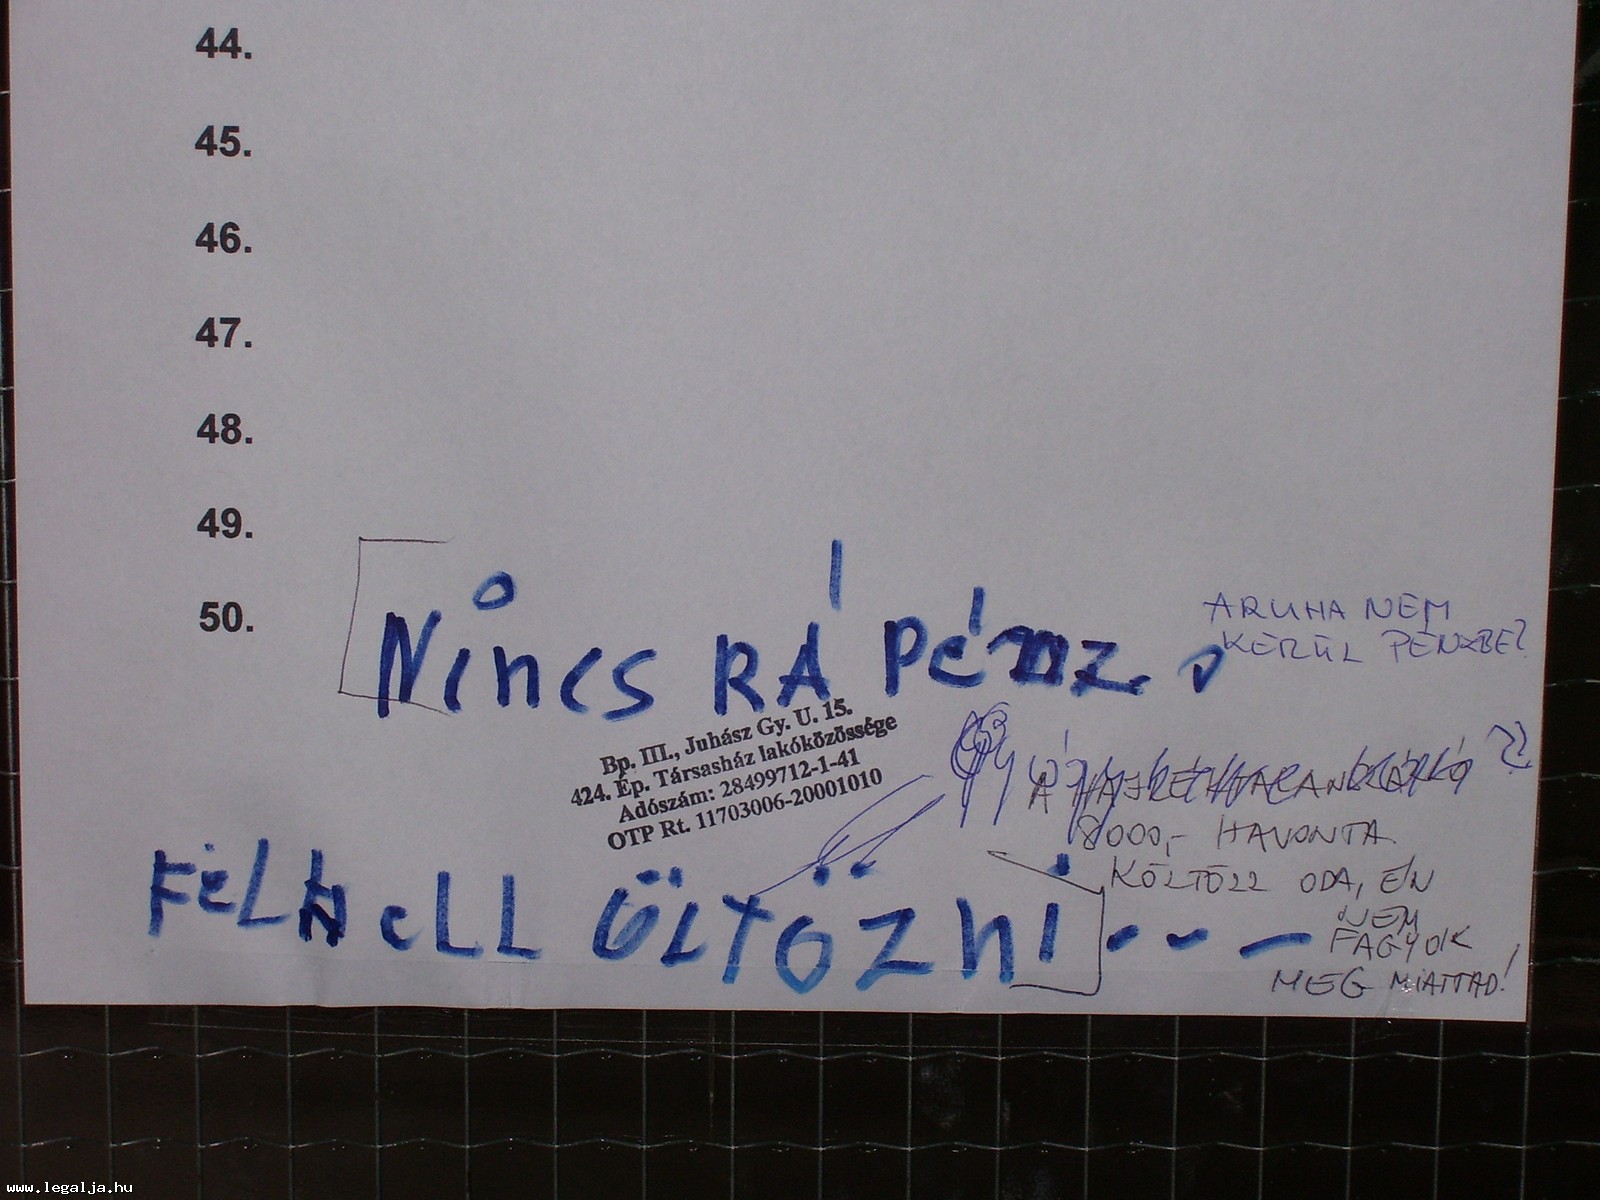 44.
45.
46.
47.
48.
49.
50.
NiNCS RÁ PÉNZ.
ARUHA NEM
KERÜL PÉNZBE?
Bp. III., Juhász Gy. U. 15.
424. Ép. Társasház lakóközössége
Adószám: 28499712-1-41
OTP Rt. 11703006-20001010
A HAJLÉKTALANSZÁLLÓ
8000,- HAVONTA
KÖLTÖZZ ODA, ÉN
NEM
FAGYOK
MEG MIATTAD!
FéL KeLL ÖLTÖZNI - - -
www.legalja.hu